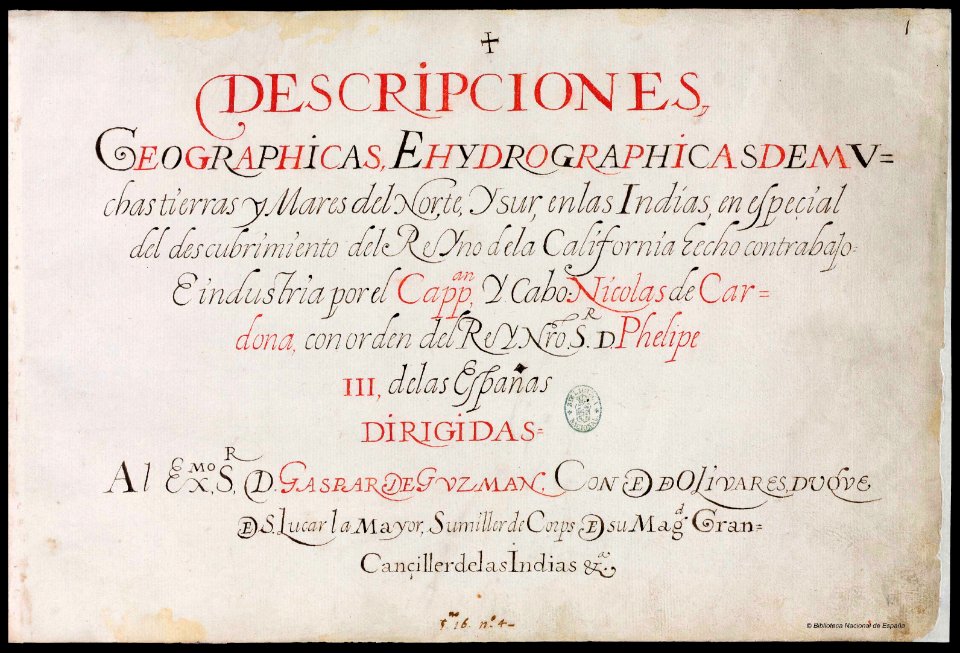 1
DESCRIPCIONES,
GEOGRAPHICAS, E HYDROGRAPHICAS DE MV=
chas tierras y Mares del Norte, Y sur, en las Indias, en espeçial
del descubrimiento del ReYno de la California hecho con trabajo
E industria por el Capp.an Y Cabo Nicolas de Car=
dona, con orden del ReY Nro. S.R D. Phelipe
III, de las Españas
DIRIGIDAS=
Al EX.MO S.R D. GASPAR DE GVZMAN, CONDE D OLIVARES, DVQVE
DE S. Lucar la Mayor, Sumiller de Corps DE su Mag.d Gran=
Cançiller de las Indias &.a
16. n.º 4
© Biblioteca Nacional de España